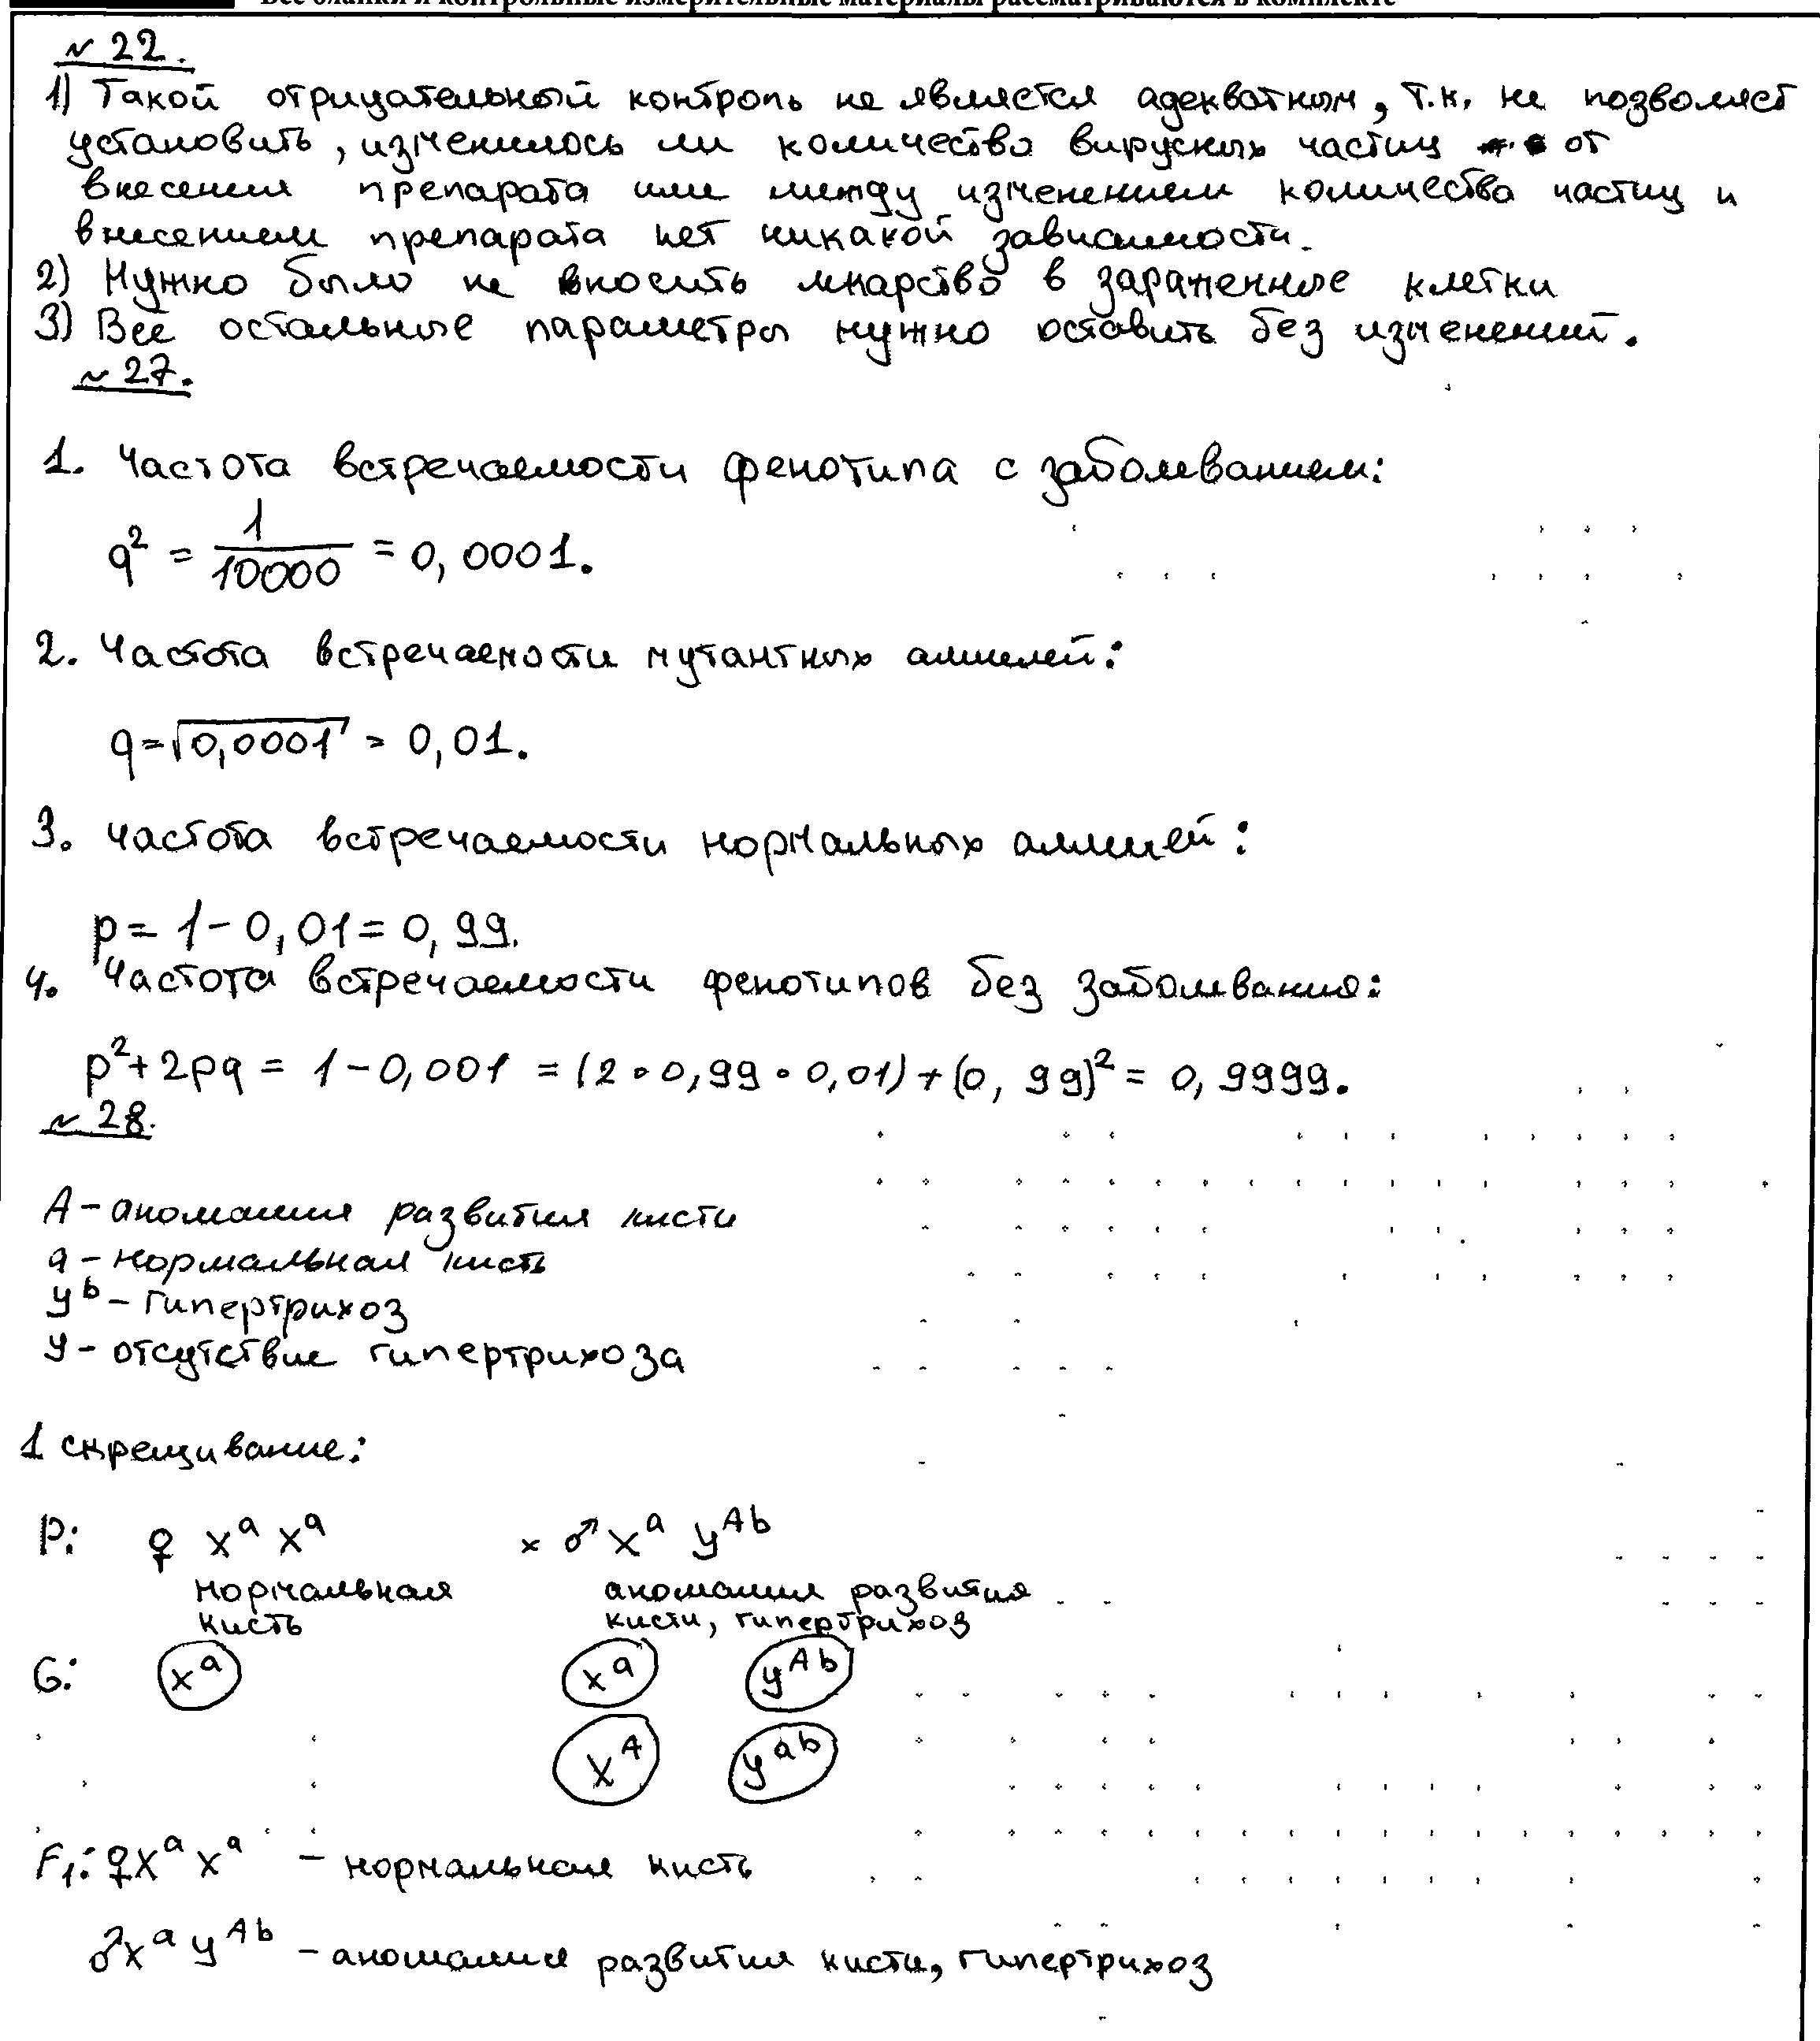 Все бланки и контрольные измерительные материалы рассматриваются в комплекте
№ 22.
1) Такой отрицательный контроль не является адекватным, т.к. не позволяет
установить, изменилось ли количество вирусных частиц от
внесения препарата или между изменением количества частиц и
внесением препарата нет никакой зависимости.
2) Нужно было не вносить лекарство в зараженные клетки
3) Все остальные параметры нужно оставить без изменений.
№ 27.
1. Частота встречаемости фенотипа с заболеванием:
q² = 1/10000 = 0,0001.
2. Частота встречаемости мутантных аллелей:
q = √0,0001 = 0,01.
3. частота встречаемости нормальных аллелей:
p = 1 - 0,01 = 0,99.
4. Частота встречаемости фенотипов без заболевания:
p² + 2pq = 1 - 0,001 = (2 • 0,99 • 0,01) + (0,99)² = 0,9999.
№ 28.
A - аномалия развития кисти
a - нормальная кисть
yᵇ - гипертрихоз
y - отсутствие гипертрихоза
1 скрещивание:
P: ♀ xᵃ xᵃ × ♂ xᵃ yᴬᵇ
нормальная аномалия развития
кисть кисти, гипертрихоз
G: xᵃ xᵃ yᴬᵇ
xᴬ yᵃᵇ
F₁: ♀ xᵃ xᵃ - нормальная кисть
♂ xᵃ yᴬᵇ - аномалия развития кисти, гипертрихоз